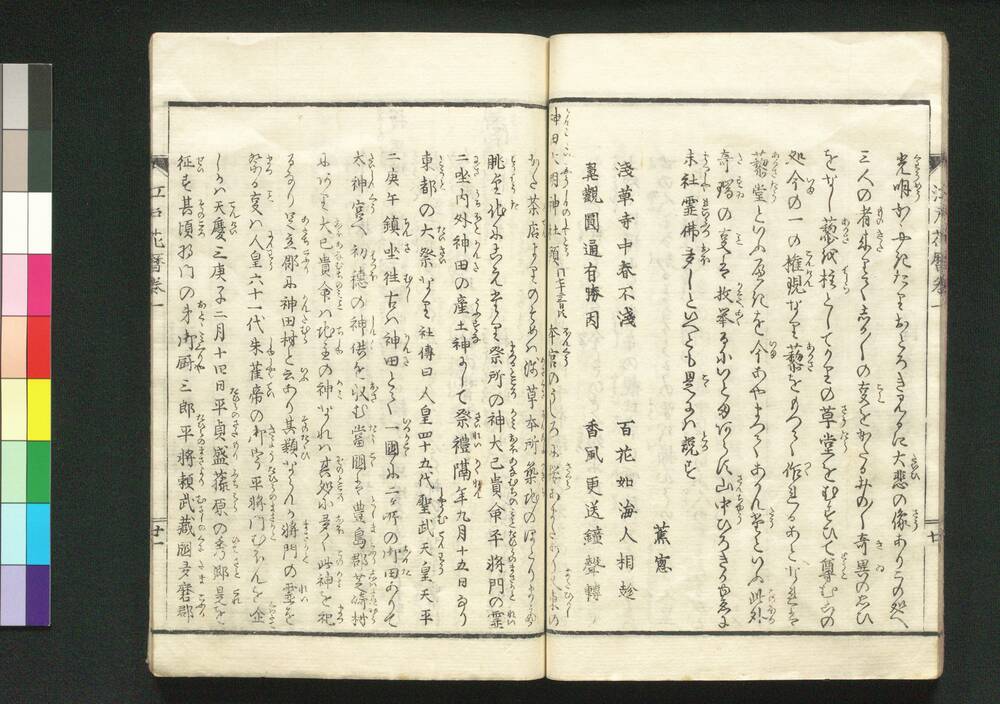 光明かゝやきたりおどろき見るに大悲の像ありこの処へ
三人の者来りてしか〴〵の事をかたるみな〳〵奇異の思ひ
をなし藜を柱としてかりの草堂をむすひて尊む
処今の一の権現なり藜をもつて作れるあとなれは
藜堂といふへきを今あやまりてあかん堂といふ此外
奇瑞の事は枚挙るにいとまあらす山中ひろき
末社霊佛多しといへとも是には説す
蕉窓
淺草寺中春不淺 百花如海人相趁
真觀圓通有勝因 香風更送鐘聲轉
神田大明神社頭 本宮のうしろに
茶店よりのそめは浅草本所築地のほとりまて
眺望他にこえたり祭所の神大已貴命平将門の霊
二坐内外神田の産土神にして祭禮隔年九月十五日なり
東都の大祭なり社傳曰人皇四十五代聖武天皇天平
二庚午鎮坐往古は神田とて一國に二ヶ所の御田ありて
太神宮へ初穂の神供を収む當國は豊島郡芝崎村
にあり大已貴命は地主の神なれは其処に多く此神を祀
るなり足立郡に神田村と云あり其類ならんか将門の霊を
祭る事は人皇六十一代朱雀帝の御宇平将門むほんを企
しかは天慶三庚子二月十四日平貞盛藤原の秀郷是を
征す其頃将門の弟御厨三郎平将頼武藏國多磨郡
江戸花暦巻一
廿
江戸花暦巻一
廿一